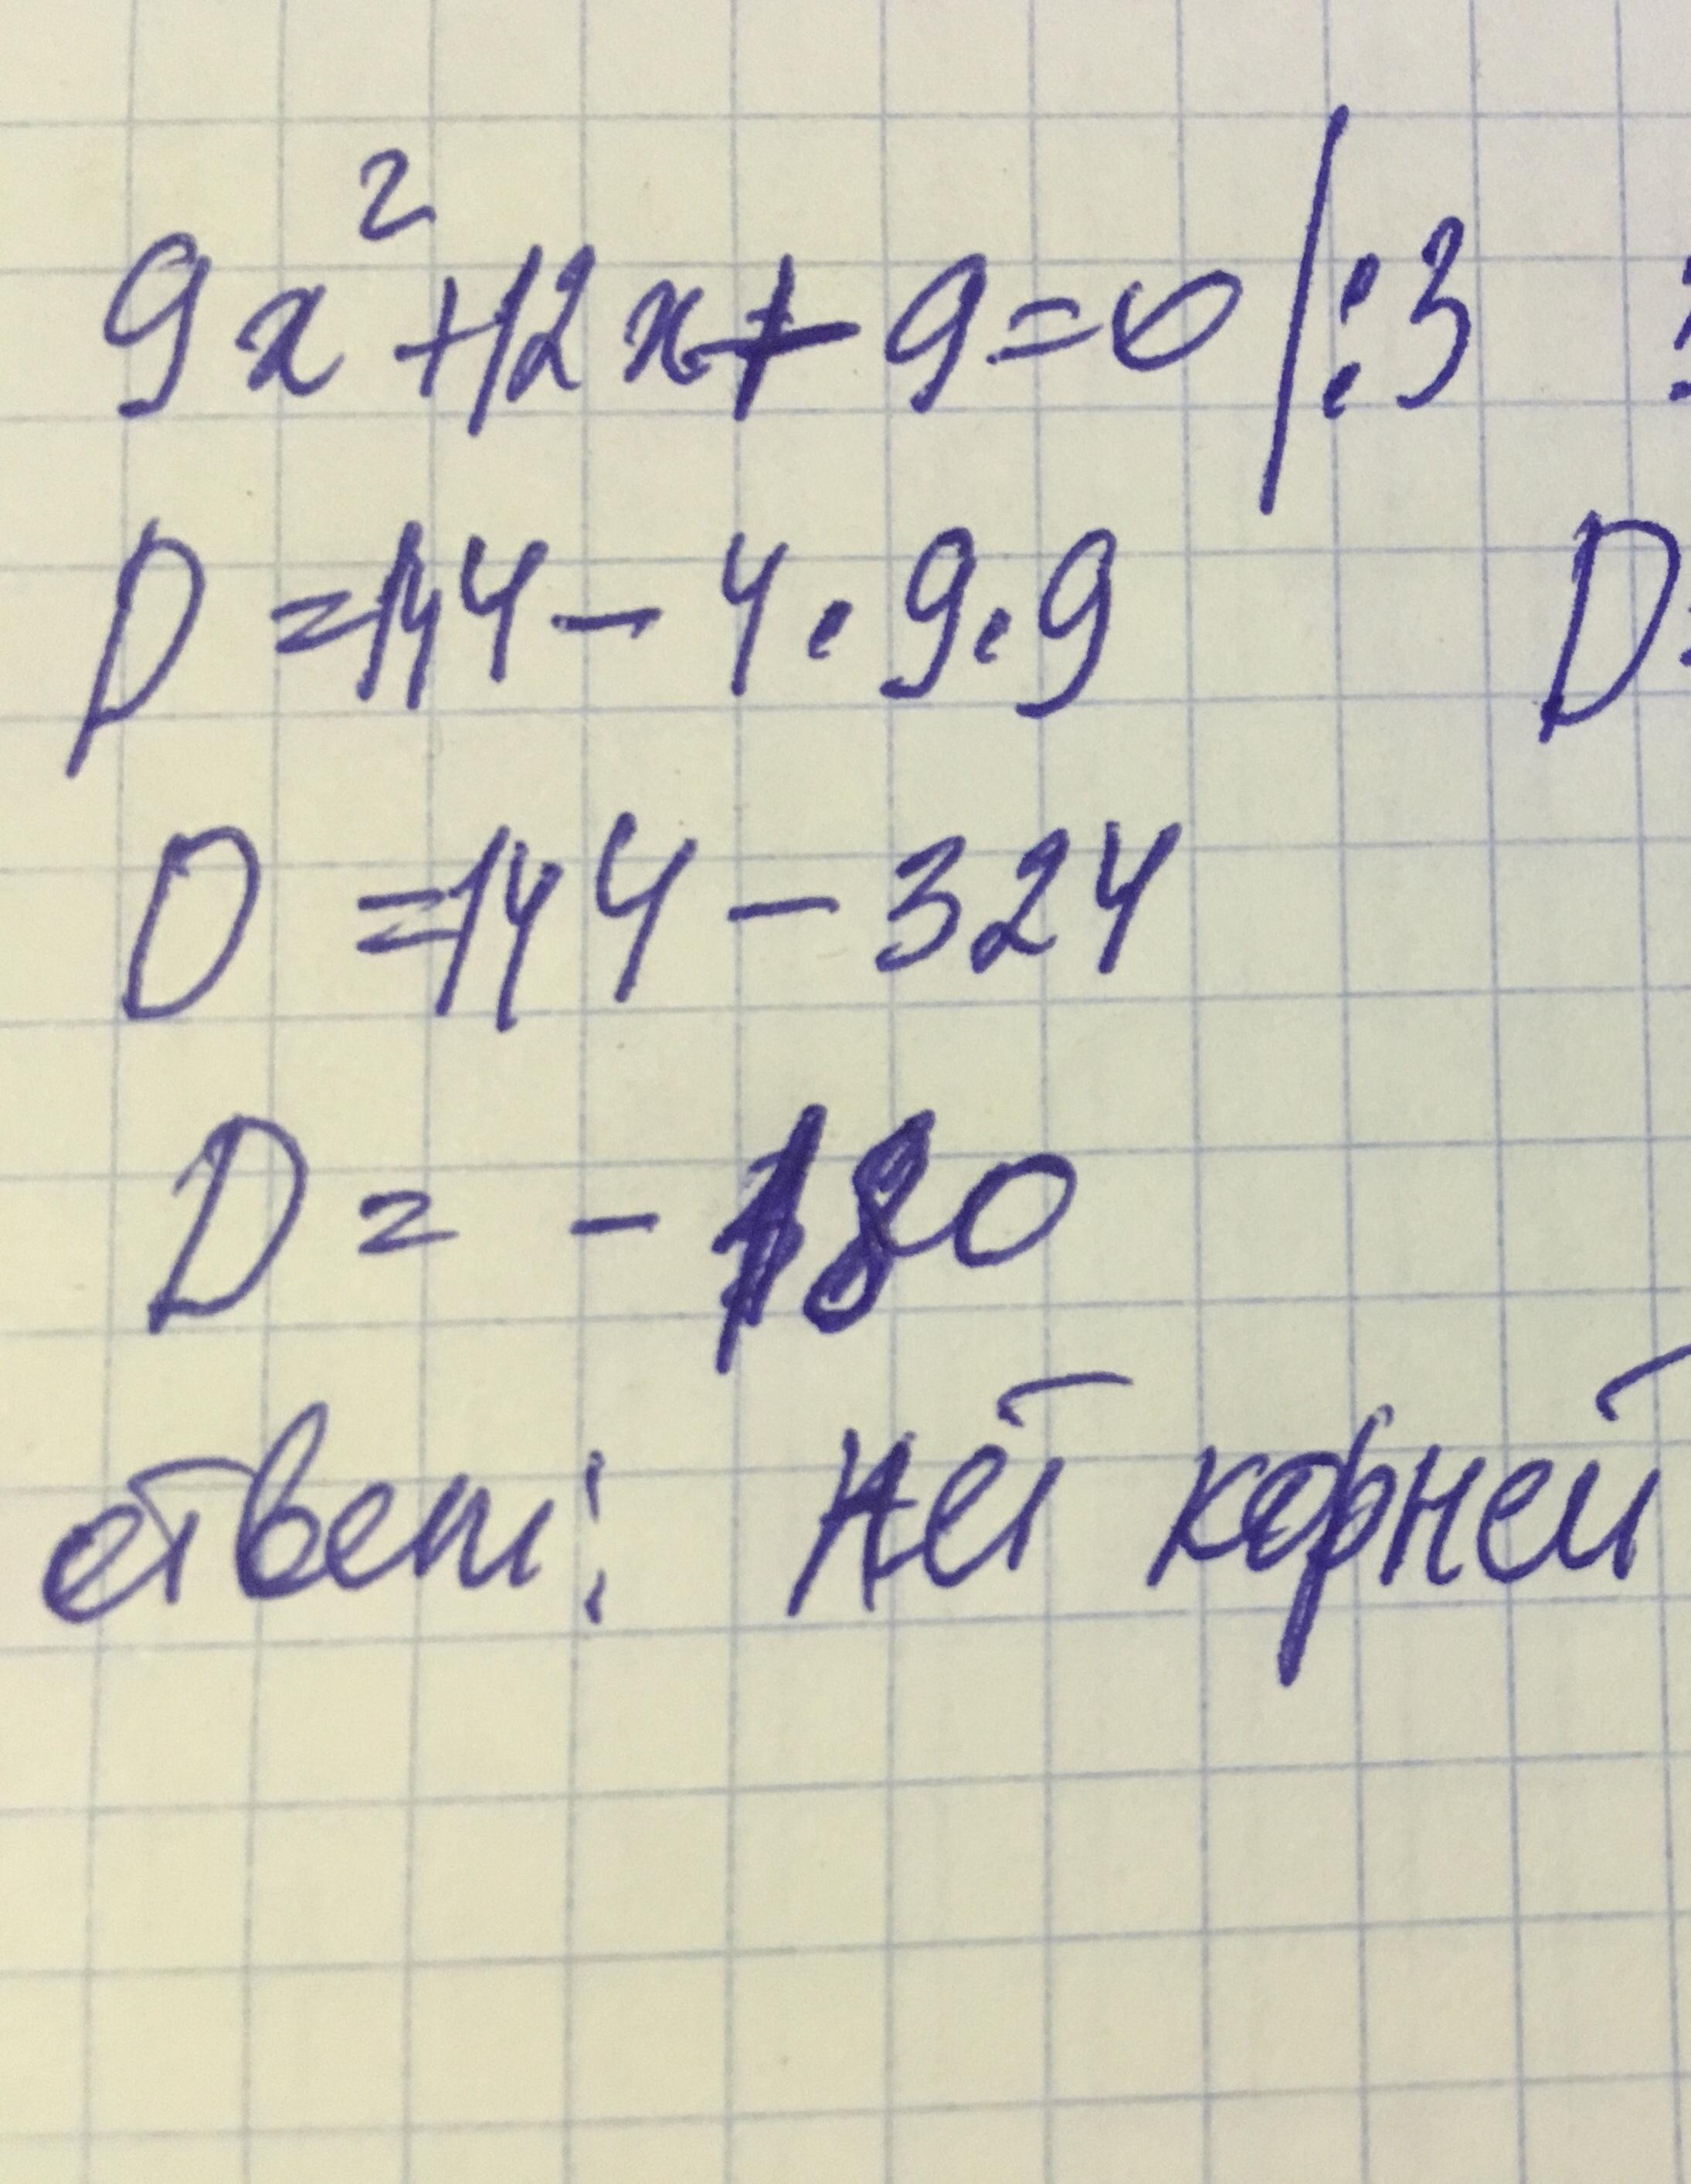 9x²+12x+9=0 |:3
D=144-4·9·9 D
D=144-324
D= -180
ответ: нет корней